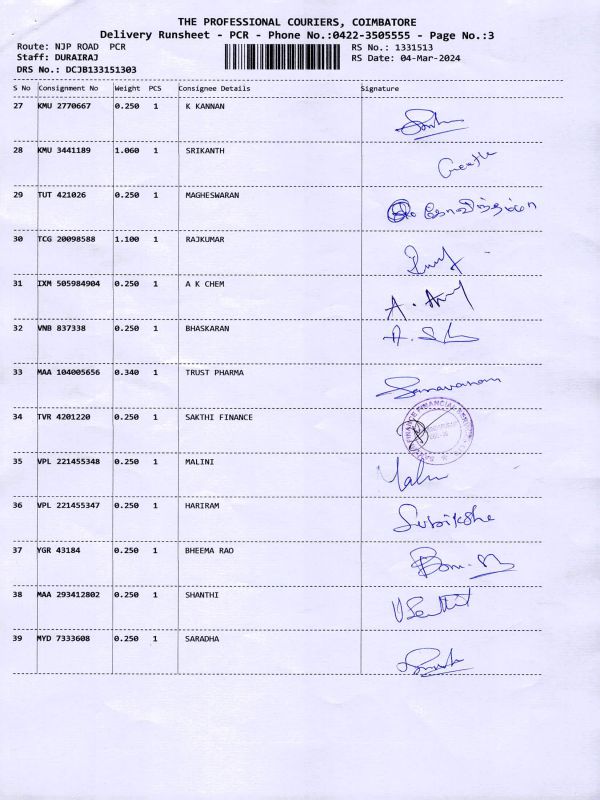 THE PROFESSIONAL COURIERS, COIMBATORE
Delivery Runsheet - PCR - Phone No.:0422-3505555 - Page No.:3
Route: NJP ROAD PCR RS No.: 1331513
Staff: DURAIRAJ RS Date: 04-Mar-2024
DRS No.: DCJB133151303
S No Consignment No Weight PCS Consignee Details Signature
27 KMU 2770667 0.250 1 K KANNAN
28 KMU 3441189 1.060 1 SRIKANTH
29 TUT 421026 0.250 1 MAGHESWARAN
30 TCG 20098588 1.100 1 RAJKUMAR
31 IXM 505984904 0.250 1 A K CHEM
32 VNB 837338 0.250 1 BHASKARAN
33 MAA 104005656 0.340 1 TRUST PHARMA Saravanan
34 TVR 4201220 0.250 1 SAKTHI FINANCE
35 VPL 221455348 0.250 1 MALINI
36 VPL 221455347 0.250 1 HARIRAM
37 YGR 43184 0.250 1 BHEEMA RAO
38 MAA 293412802 0.250 1 SHANTHI
39 MYD 7333608 0.250 1 SARADHA